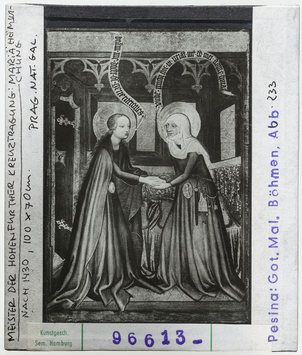 MEISTER DER HOHENFURTHER KREUZTRAGUNG: MARIÄ HEIMSU-
CHUNG
NACH 1430, 100 x 70 cm. PRAG. NAT. GAL.
Pesina: Got. Mal. Böhmen, Abb. 233
Kunstgesch.
Sem. Hamburg
96613-